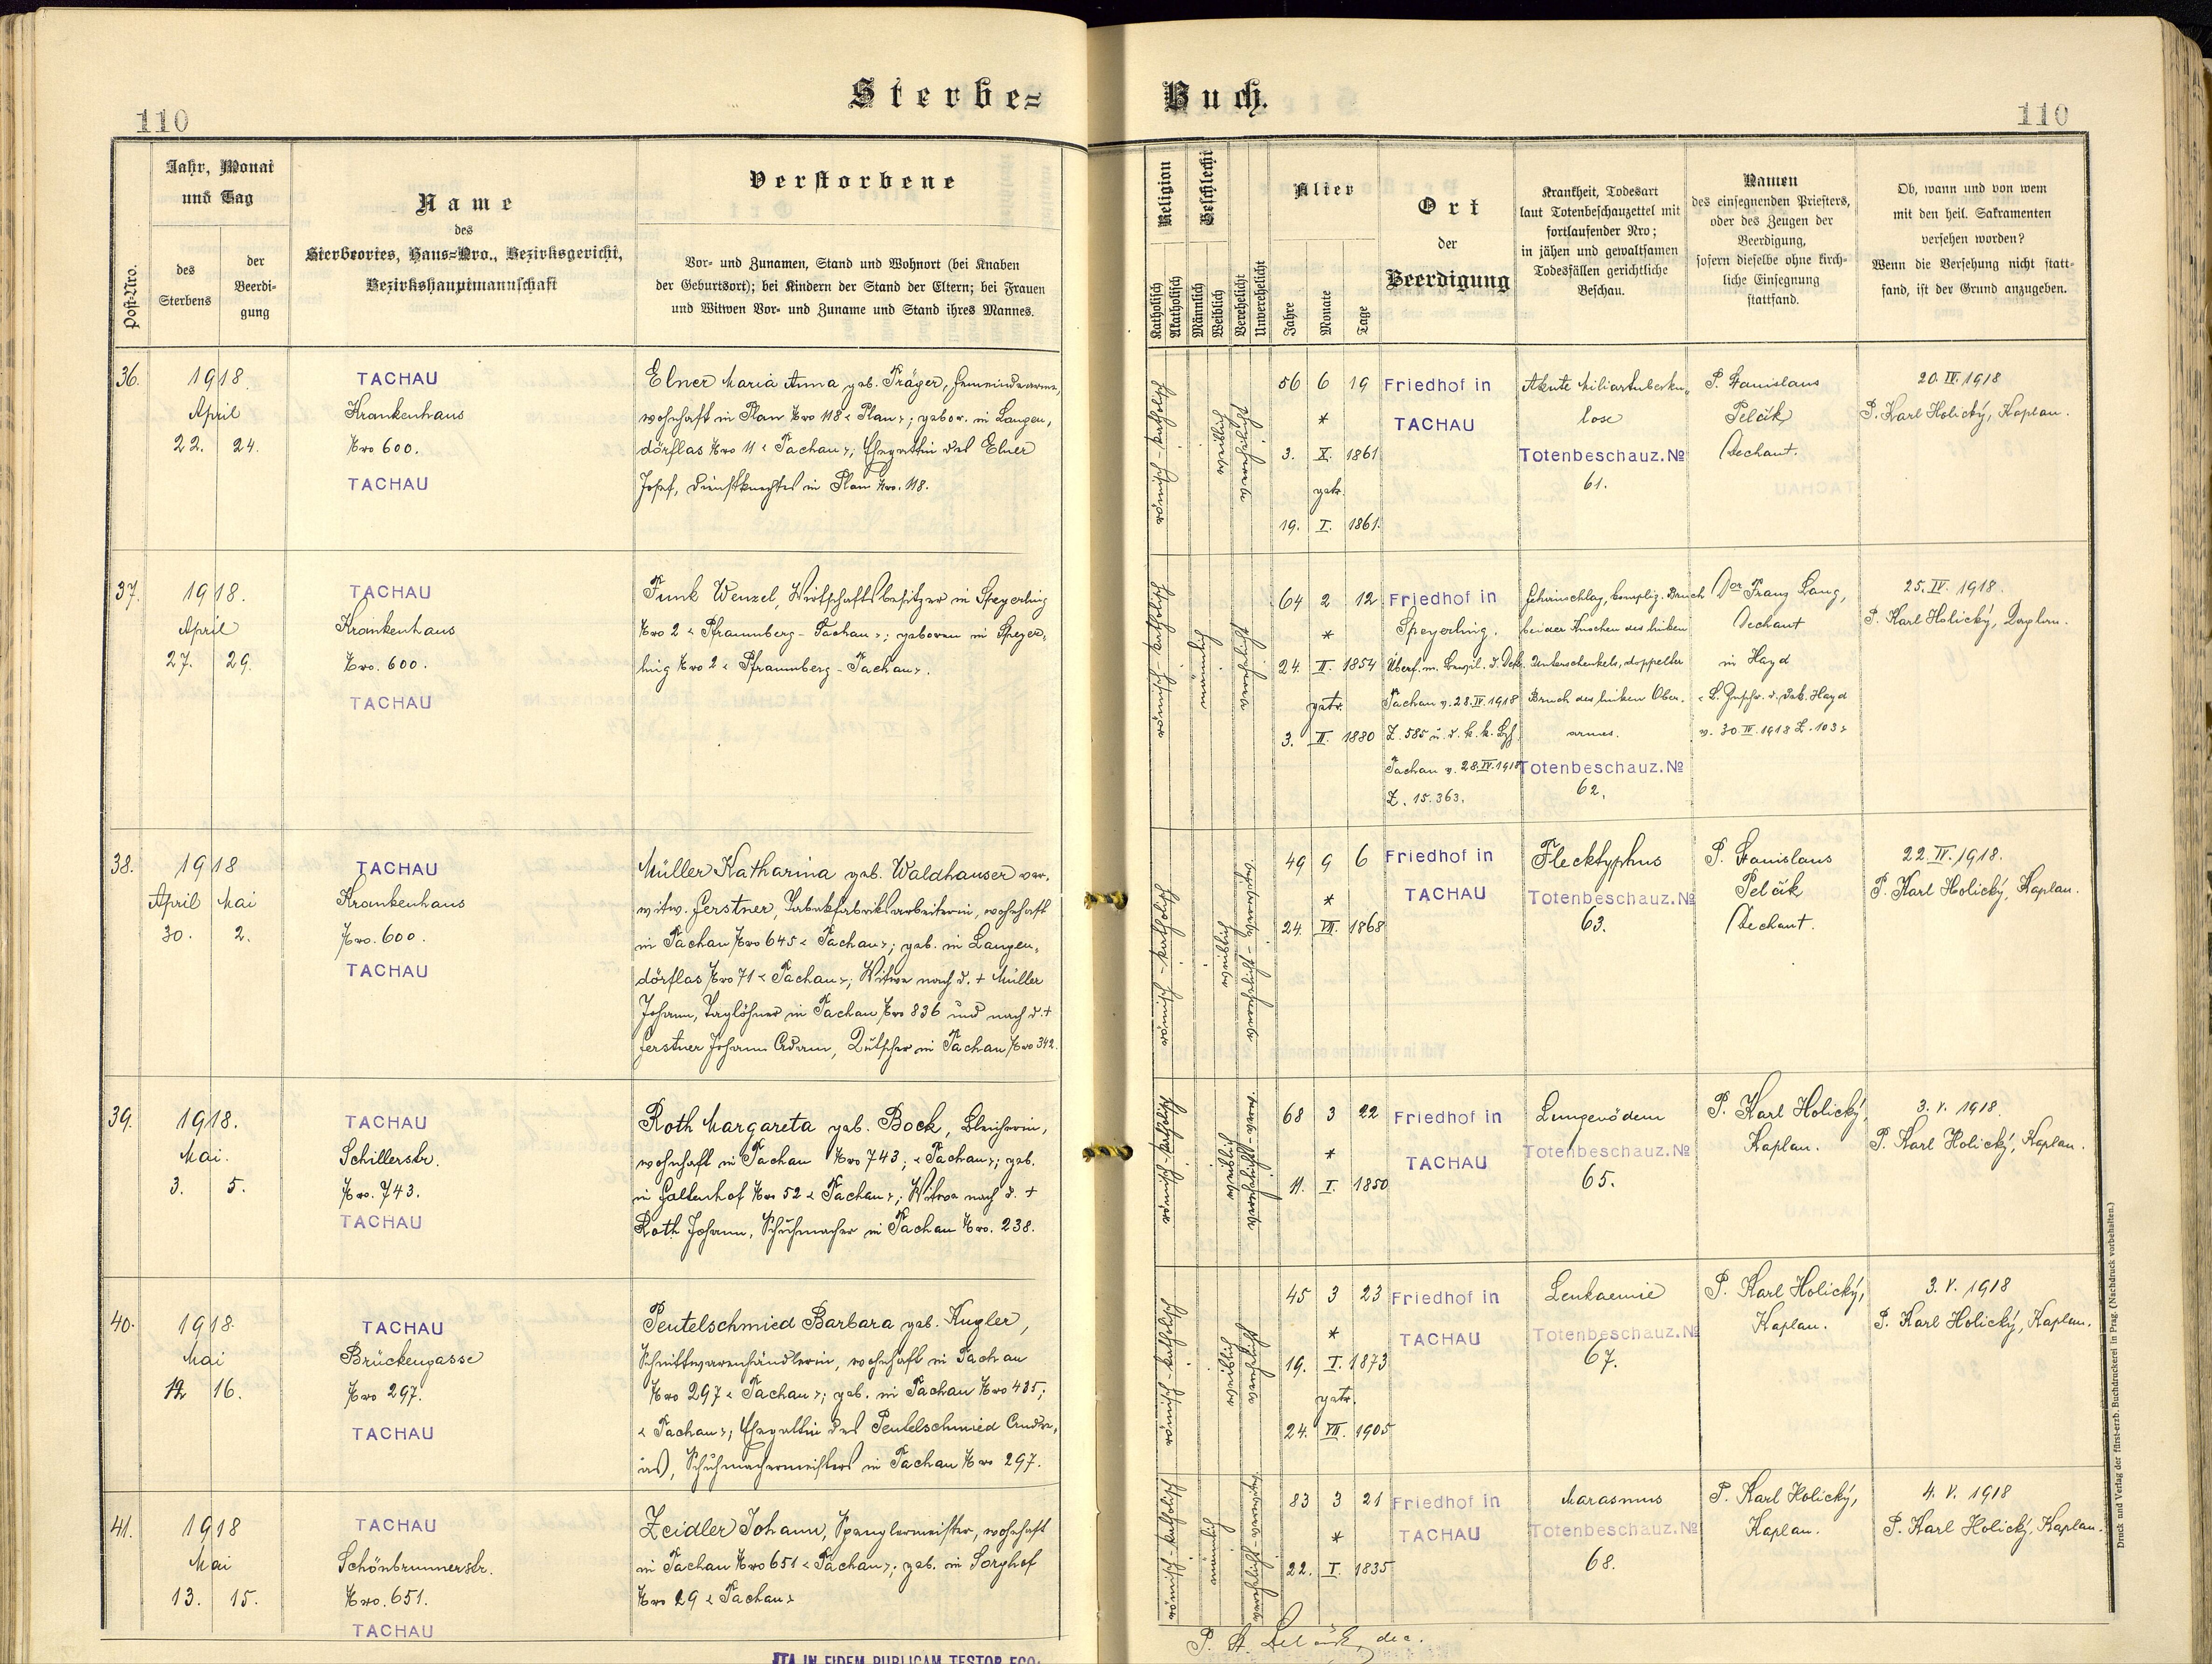 Sterbe=
Buch.
110
110
Post-Nro.
Jahr, Monat
und Tag
des
Sterbens
der
Beerdi-
gung
Name
des
Sterbeortes, Haus=Nro., Bezirksgericht,
Bezirkshauptmannschaft
Verstorbene
Vor- und Zunamen, Stand und Wohnort (bei Knaben
der Geburtsort); bei Kindern der Stand der Eltern; bei Frauen
und Witwen Vor- und Zuname und Stand ihres Mannes.
Religion
Katholisch
Akatholisch
Geschlecht
Männlich
Weiblich
Verehelicht
Unverehelicht
Alter
Jahre
Monate
Tage
Ort
der
Beerdigung
Krankheit, Todesart
laut Totenbeschauzettel mit
fortlaufender Nro;
in jähen und gewaltsamen
Todesfällen gerichtliche
Beschau.
Namen
des einsegnenden Priesters,
oder des Zeugen der
Beerdigung,
sofern dieselbe ohne kirch-
liche Einsegnung
stattfand.
Ob, wann und von wem
mit den heil. Sakramenten
versehen worden?
Wenn die Versehung nicht statt-
fand, ist der Grund anzugeben.
36.
1918.
April
22. 24.
TACHAU
Krankenhaus
Nro 600.
TACHAU
Elner Maria Anna geb. Träger, Gemeindearme,
wohnhaft in Plan Nro 118 < Plan >; gebor. in Langen-
dörflas Nro 11 < Tachau >; Ehegattin des Elner
Josef, Dienstknechtes in Plan Nro. 118.
römisch-katholisch
weiblich
verehelicht
56 6 19
*
3. X. 1861
getr.
19. I. 1861.
Friedhof in
TACHAU
Akute Miliartuberku-
lose
Totenbeschauz. №
61.
P. Stanislaus
Pelčák
Dechant.
20. IV. 1918
P. Karl Holický, Kaplan.
37.
1918.
April
27. 29.
TACHAU
Krankenhaus
Nro. 600.
TACHAU
Funk Wenzel, Wirtschaftsbesitzer in Speyerling
Nro 2 < Pfraumberg - Tachau >; geboren in Speyer-
ling Nro 2 < Pfraumberg - Tachau >.
römisch-katholisch
männlich
verehelicht
64 2 12
*
24. II. 1854
getr.
3. II. 1880
Friedhof in
Speyerling.
Tachau v. 28. IV. 1918
Z. 585 u. d. k. k.
Tachau v. 28. IV. 1918
Z. 15.363.
Gehirnschlag, kompliz. Bruch
beider Knochen des linken
Unterschenkels, doppelter
Bruch des linken Ober-
armes.
Totenbeschauz. №
62.
Dor Franz Lang,
Dechant
in Hayd
Hayd
v. 30. IV. 1918 Z. 103 >
25. IV. 1918.
P. Karl Holický, Kaplan.
38.
1918
April Mai
30. 2.
TACHAU
Krankenhaus
Nro. 600.
TACHAU
Müller Katharina geb. Waldhauser ver-
witw. Gerstner, Tabakfabriksarbeiterin, wohnhaft
in Tachau Nro 645 < Tachau >; geb. in Langen-
dörflas Nro 71 < Tachau >; Witwe nach d. + Müller
Johann, Taglöhner in Tachau Nro 836 und nach d. +
Gerstner Johann Adam, Kutscher in Tachau Nro 342.
römisch-katholisch
weiblich
49 9 6
*
24. VII. 1868
Friedhof in
TACHAU
Flecktyphus
Totenbeschauz. №
63.
P. Stanislaus
Pelčák
Dechant.
22. IV. 1918.
P. Karl Holický, Kaplan.
39.
1918.
Mai.
3. 5.
TACHAU
Schillerstr.
Nro. 743.
TACHAU
Roth Margareta geb. Bock, Bleicherin,
wohnhaft in Tachau Nro 743; < Tachau >; geb.
in Galtenhof Nro 52 < Tachau >; Witwe nach d. +
Roth Johann, Schuhmacher in Tachau Nro. 238.
römisch-katholisch
weiblich
68 3 22
*
11. I. 1850
Friedhof in
TACHAU
Lungenödem
Totenbeschauz. №
65.
P. Karl Holický,
Kaplan.
3. V. 1918.
P. Karl Holický, Kaplan.
40.
1918.
Mai
16.
TACHAU
Brückengasse
Nro 297.
TACHAU
Peutelschmied Barbara geb. Kugler,
Schnittwarenhändlerin, wohnhaft in Tachau
Nro 297 < Tachau >; geb. in Tachau Nro 435;
< Tachau >; Ehegattin des Peutelschmied Andre-
as, Schuhmachermeisters in Tachau Nro 297.
römisch-katholisch
weiblich
verehelicht
45 3 23
*
19. I. 1873
getr.
24. VII. 1905
Friedhof in
TACHAU
Leukaemie
Totenbeschauz. №
67.
P. Karl Holický,
Kaplan.
3. V. 1918
P. Karl Holický, Kaplan.
41.
1918
Mai
13. 15.
TACHAU
Schönbrunnerstr.
Nro. 651.
TACHAU
Zeidler Johann, Spenglermeister, wohnhaft
in Tachau Nro 651 < Tachau >; geb. in Sorghof
Nro 29 < Tachau >
römisch-katholisch
männlich
83 3 21
*
22. I. 1835
Friedhof in
TACHAU
Marasmus
Totenbeschauz. №
68.
P. Karl Holický,
Kaplan.
4. V. 1918
P. Karl Holický, Kaplan.
P. St. Pelčák, dec.
ITA IN FIDEM PUBLICAM TESTOR EGO:
Druck und Verlag der fürst-erzb. Buchdruckerei in Prag. (Nachdruck vorbehalten.)